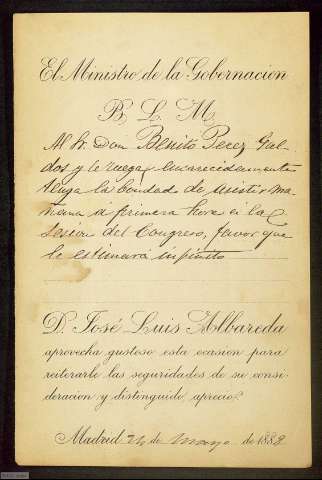 El Ministro de la Gobernacion
B. L. M.
Al Sr. Don Benito Perez Gal-
dos y le ruega encarecidamente
tenga la bondad de asistir ma-
ñana á primera hora á la
Sesion del Congreso, favor que
le estimará infinito
D. José Luis Albareda
aprovecha gustoso esta ocasion para
reiterarle las seguridades de su consi-
deracion y distinguido aprecio.
Madrid 24 de Mayo de 1888